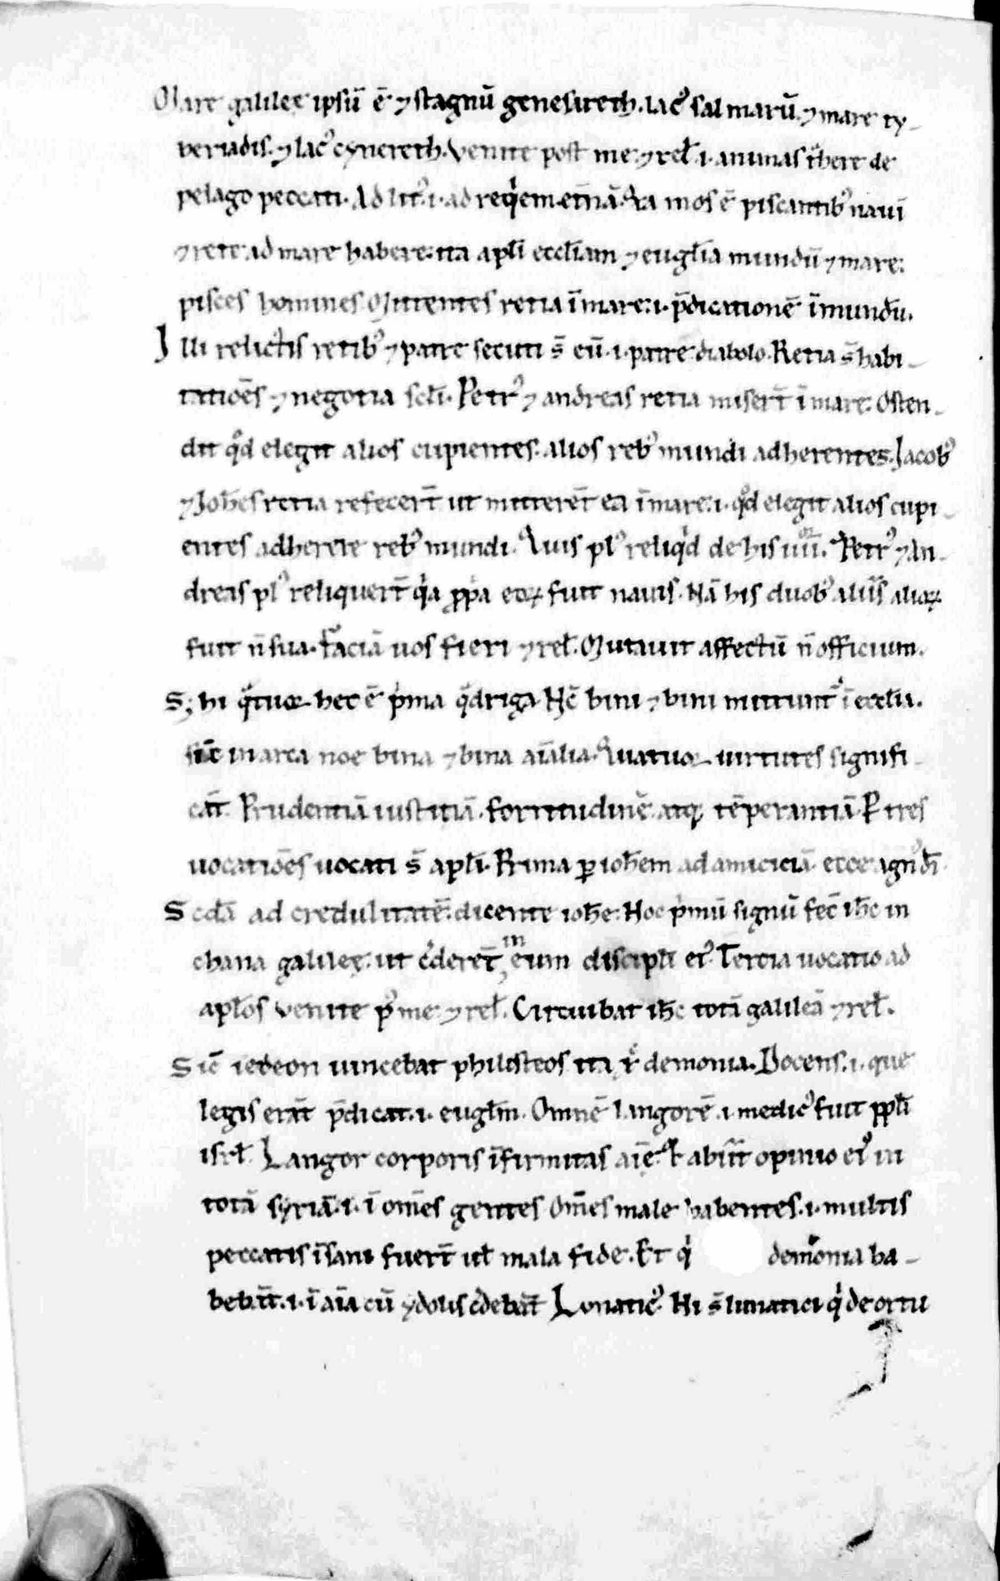 Mare galileę ipsū ē ⁊ stagnū genesareth. lacꝰ salmarū. ⁊ mare ty-
beriadis. ⁊ lacꝰ cynereth. Venite post me ⁊ reł. .i. animas t̃here de
pelago peccati. Ad litꝰ .i. ad reqͥem et̄nā. Qͣa mos ē piscantibꝰ nauī
⁊ rete ad mare habere. ita apłi ecclīam ⁊ euglīa mundū ⁊ mare.
pisces homines. Mittentes retia ī mare .i. p̄dicationē ī mundū.
Illi relictis retibꝰ ⁊ patre secuti s̄ eū .i. patrē diabolo. Retia s̄ habi-
tatioēs ⁊ negotia scłi. Petrꝰ ⁊ andreas retia miser̄t ī mare. Osten-
dit qͦd elegit alios cupientes. alios rebꝰ mundi adherentes. Jacobꝰ
⁊ Joh̄es retia refecer̄t ut mitterēt ea ī mare .i. qͦd elegit alios cupi-
entes adherere rebꝰ mundi. Quis plꝰ reliqͥd de his iiii. Petrꝰ ⁊ An-
dreas plꝰ reliquer̄t qͥa ꝓpͥa eoꝝ fuit nauis. Nā his duobꝰ aliis alioꝝ
fuit n̄ sua. Faciā uos fieri ⁊ reł. Mutauit affectū n̄ officium.
S; hi qͣtuor hec ē pͥma qͣdriga. Hc̄ bini ⁊ bini mittunt̄ ī ecclīa.
sic̄ in arca noe bina ⁊ bina aīalia. Quatuor uirtutes signifi-
cāt. Prudentiā iustitiā. fortitudinē. atqꝫ tēperantiā. P tres
uocatioēs uocati s̄ apłi. Prima ꝑ ioh̄em ad amiciciā. ecce agnꝰ dī.
Scdā ad credulitatē. dicente ioh̄e. Hoc pͥmū signū fec̄ ih̄c in
chana galileę. ut cͥderēt in eum discipłi eiꝰ. Tercia uocatio ad
apłos venite pꝰ me ⁊ reł. Circuibat ih̄c totā galileā ⁊ reł.
Sic̄ iedeon uincebat philisteos ita xͬ demonia. Docens .i. que
legis erāt p̄dicat .i. euglm̄. Omnē langorē .i. medicꝰ fuit ppłi
isrł. Langor corporis īfirmitas aīe. Et abiīt opinio eiꝰ in
totā syriā .i. ī om̄es gentes. Om̄es male habentes .i. multis
peccatis īsani fuer̄t uł mala fide. Et qͥ demonia ha-
beb̄āt .i. ī aīa cū ydolis c̄debāt. Lunaticꝰ. Hi s̄ lunatici qͥ de ortu